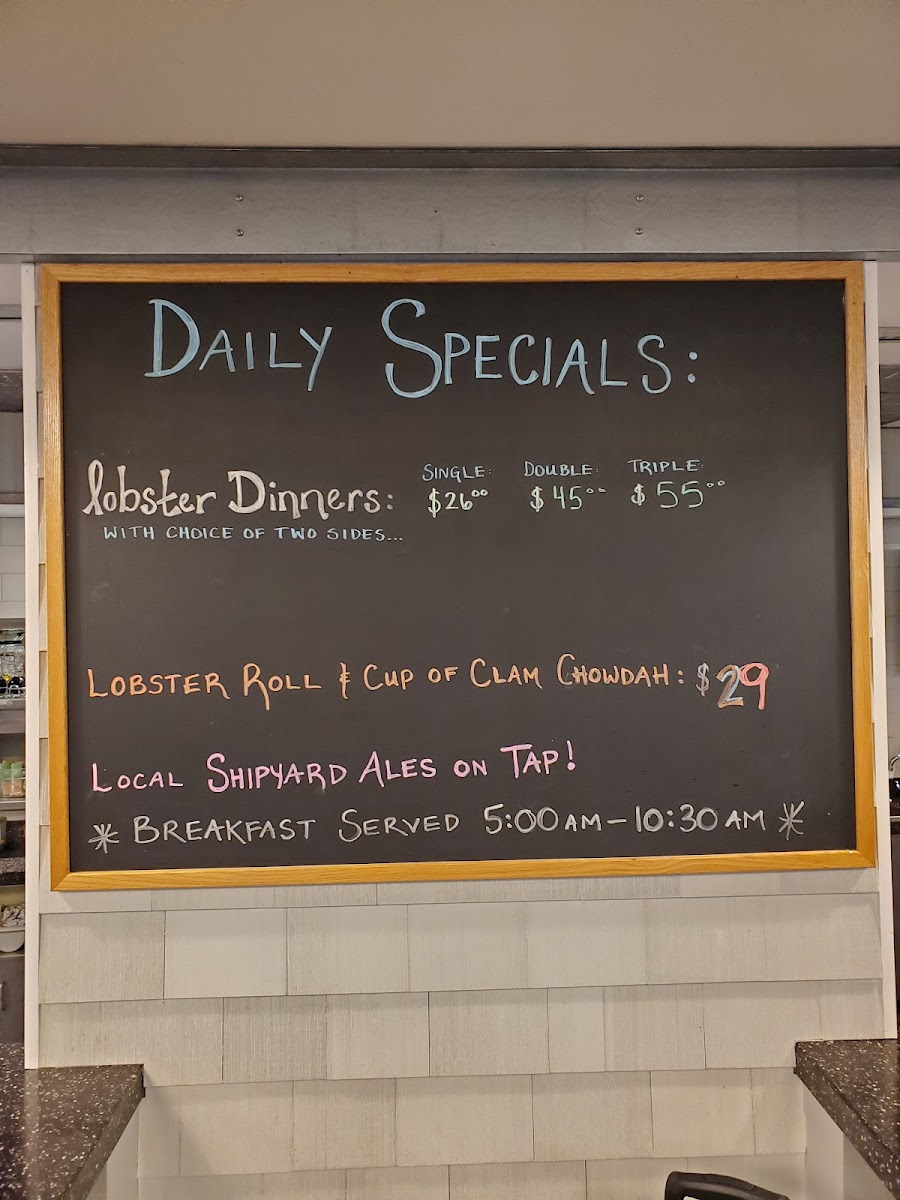 DAILY SPECIALS:
SINGLE: DOUBLE: TRIPLE:
lobster Dinners: $26⁰⁰ $45⁰⁰ $55⁰⁰
WITH CHOICE OF TWO SIDES...
LOBSTER ROLL & CUP OF CLAM CHOWDAH: $29
LOCAL SHIPYARD ALES ON TAP!
* BREAKFAST SERVED 5:00 AM – 10:30 AM *